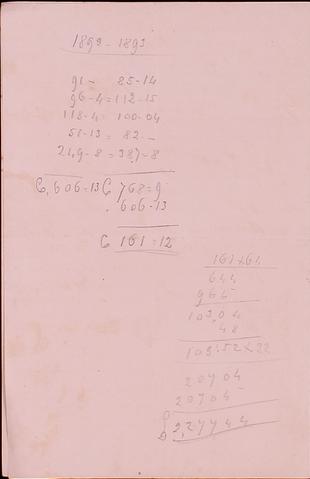 1892 - 1893
91 - 85-14
96-4=112-15
118-4= 100-04
51-13= 82 -
249-8=387-8
₢ 606=13 ₢ 768=9
606-13
₢ 161=12
161×64
644
966
103,04
48
103.52×22
20704
20704
2,27744